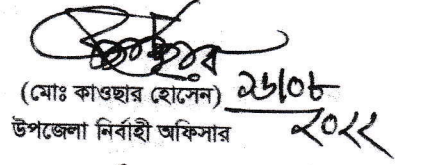 (মোঃ কাওছার হোসেন) ২৬/০৮
উপজেলা নির্বাহী অফিসার ২০২২